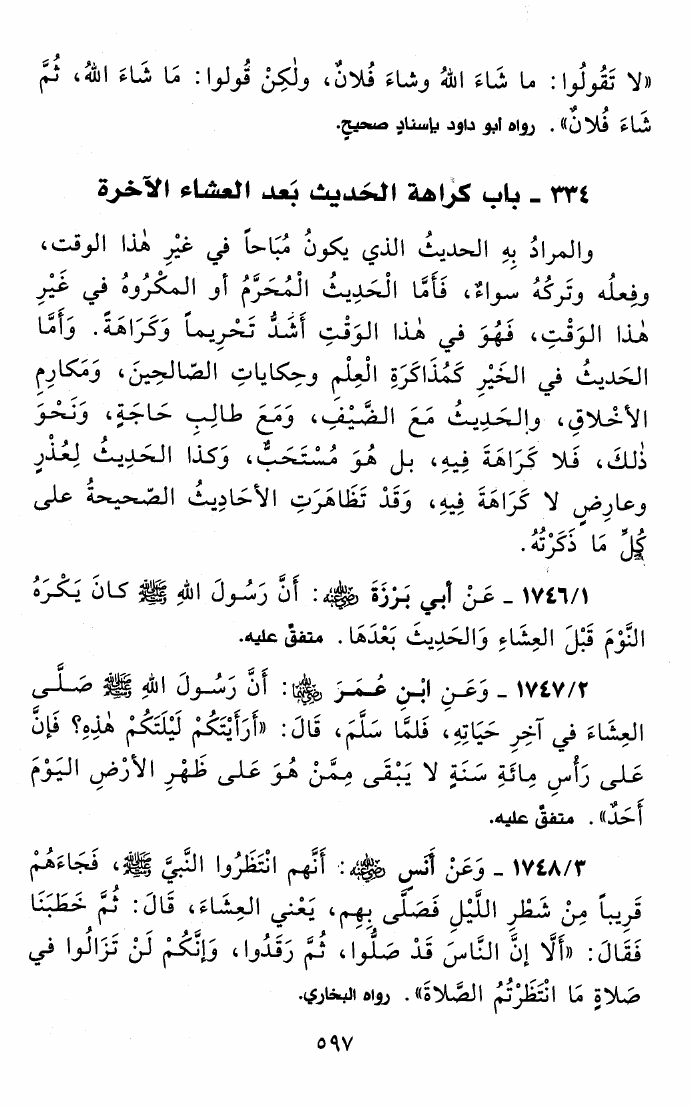 «لا تَقُولُوا: ما شَاءَ اللهُ وشاءَ فُلانٌ، ولٰكِنْ قُولوا: مَا شَاءَ اللهُ، ثُمَّ
شَاءَ فُلانٌ». رواه أبو داود بإسنادٍ صحيحٍ.
٣٣٤ - باب كراهة الحَديث بَعد العشاء الآخرة
والمرادُ بِهِ الحديثُ الذي يكونُ مُبَاحاً في غيْرِ هٰذا الوقت،
وفِعلُه وتَركُهُ سواءٌ، فَأمَّا الْحَدِيثُ الْمُحَرَّمُ أو المكْرُوهُ في غَيْرِ
هٰذا الوَقْتِ، فَهُوَ في هٰذا الوَقْتِ أَشَدُّ تَحْرِيماً وَكَرَاهَةً. وَأَمَّا
الحَديثُ في الخَيْرِ كَمُذَاكَرَةِ الْعِلْمِ وحِكاياتِ الصّالحِينَ، وَمَكارِمِ
الأخْلاقِ، والحَدِيثُ مَعَ الضَّيْفِ، وَمَعَ طالِبِ حَاجَةٍ، وَنَحْوَ
ذٰلكَ، فَلا كَرَاهَةَ فِيهِ، بل هُوَ مُسْتَحَبٌّ، وَكذا الحَدِيثُ لِعُذْرٍ
وعارِضٍ لا كَرَاهَةَ فِيهِ، وَقَدْ تَظَاهَرَتِ الأحَادِيثُ الصّحيحةُ على
كُلِّ مَا ذَكَرْتُهُ.
١٧٤٦/١ - عَنْ أبي بَرْزَةَ رضي الله عنه: أَنَّ رَسُولَ اللهِ ﷺ كانَ يَكْرَهُ
النَّوْمَ قَبْلَ العِشَاءِ وَالحَدِيثَ بَعْدَهَا. متفقٌ عليه.
١٧٤٧/٢ - وَعَنِ ابْنِ عُمَرَ رضي الله عنهما: أَنَّ رَسُولَ اللهِ ﷺ صَلَّى
العِشَاءَ في آخِرِ حَيَاتِهِ، فَلمَّا سَلَّمَ، قَالَ: «أَرَأَيْتَكُمْ لَيْلَتَكُمْ هٰذِهِ؟ فَإنَّ
عَلى رَأْسِ مِائَةِ سَنَةٍ لا يَبْقَى مِمَّنْ هُوَ عَلى ظَهْرِ الأرْضِ اليَوْمَ
أَحَدٌ». متفقٌ عليه.
١٧٤٨/٣ - وَعَنْ أَنَسٍ رضي الله عنه: أَنَّهم انْتَظَرُوا النَّبيَّ ﷺ، فَجَاءَهُمْ
قَرِيباً مِنْ شَطْرِ اللَّيْلِ فَصَلَّى بِهِم، يَعْني العِشَاءَ، قَالَ: ثُمَّ خَطَبَنَا
فَقَالَ: «أَلَا إنَّ النَّاسَ قَدْ صَلُّوا، ثُمَّ رَقَدُوا، وَإنَّكُمْ لَنْ تَزَالُوا في
صَلاةٍ مَا انْتَظَرْتُمُ الصَّلاةَ». رواه البخاري.
٥٩٧